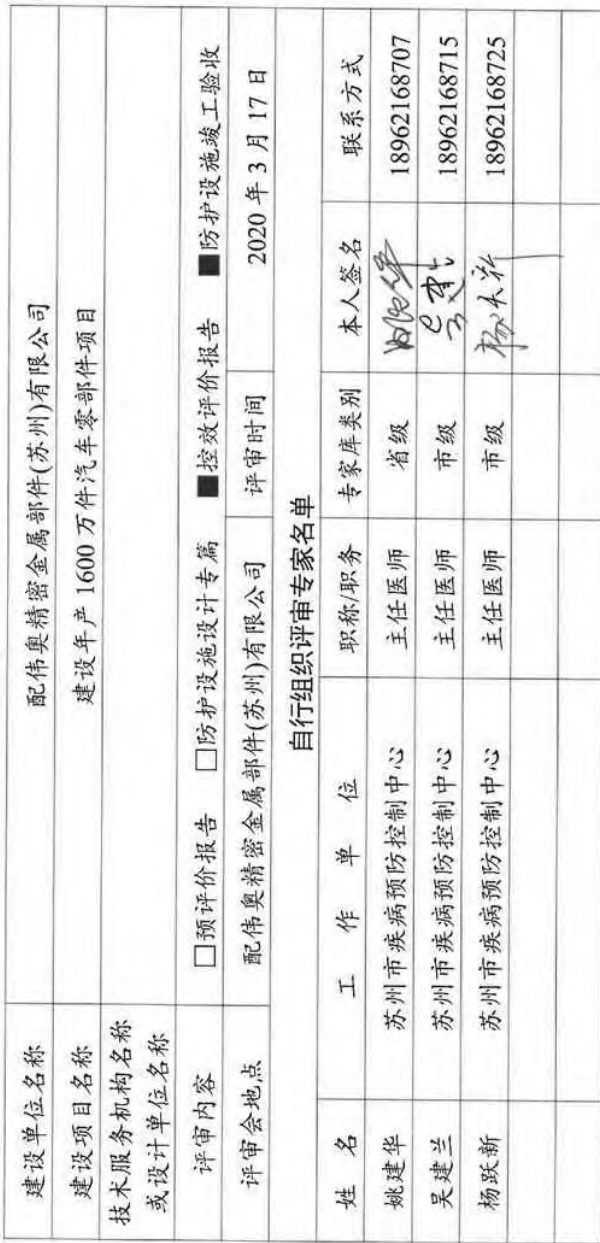 建设单位名称 配伟奥精密金属部件(苏州)有限公司
建设项目名称 建设年产1600万件汽车零部件项目
技术服务机构名称
或设计单位名称
评审内容 □预评价报告 □防护设施设计专篇 ■控效评价报告 ■防护设施竣工验收
评审会地点 配伟奥精密金属部件(苏州)有限公司 评审时间 2020年3月17日
自行组织评审专家名单
姓 名 工 作 单 位 职称/职务 专家库类别 本人签名 联系方式
姚建华 苏州市疾病预防控制中心 主任医师 省级 18962168707
吴建兰 苏州市疾病预防控制中心 主任医师 市级 18962168715
杨跃新 苏州市疾病预防控制中心 主任医师 市级 18962168725